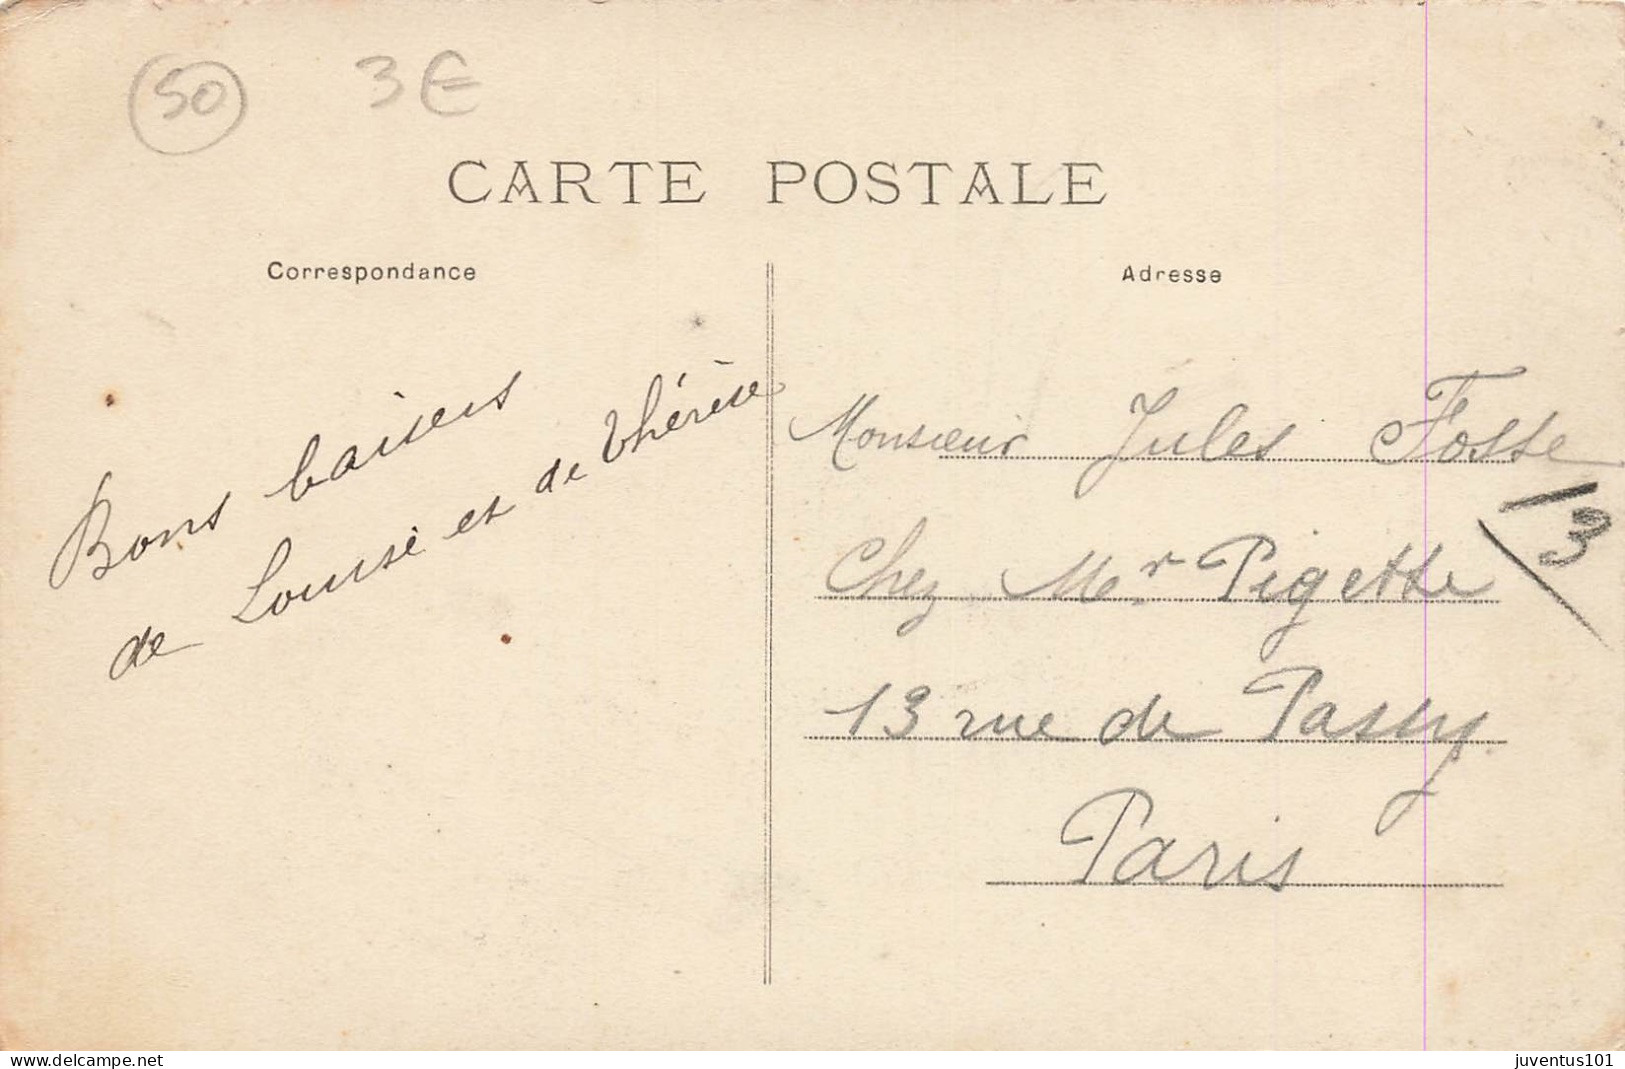 50 3€
CARTE POSTALE
Correspondance
Bons baisers
de Louise et de Thérèse
Adresse
Monsieur Jules Fosse
Chez Mr Pigette
13 rue de Passy
Paris
13
www.delcampe.net
juventus101